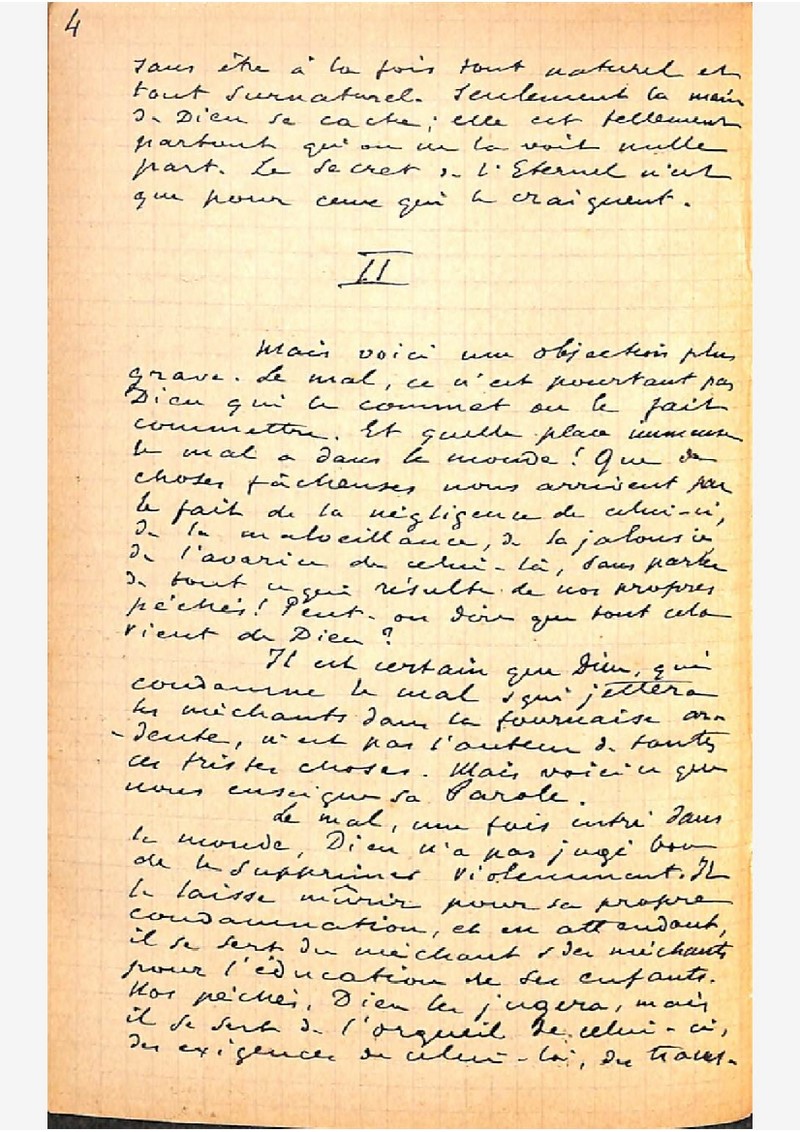 4
sans être à la fois tout naturel et
tout surnaturel. Seulement la main
de Dieu se cache ; elle est tellement
partout qu'on ne la voit nulle
part. Le secret de l'Eternel n'est
que pour ceux qui le craignent.
II
Mais voici une objection plus
grave. Le mal, ce n'est pourtant pas
Dieu qui le commet ou le fait
commettre. Et quelle place immense
le mal a dans le monde ! Que de
choses fâcheuses nous arrivent par
le fait de la négligence de celui-ci,
de la malveillance, de la jalousie
de l'avarice de celui-là, sans parler
de tout ce qui résulte de nos propres
péchés ! Peut-on dire que tout cela
vient de Dieu ?
Il est certain que Dieu, qui
condamne le mal & qui jettera
les méchants dans la fournaise ar-
-dente, n'est pas l'auteur de toutes
ces tristes choses. Mais voici ce que
nous enseigne sa Parole.
Le mal, une fois entré dans
le monde, Dieu n'a pas jugé bon
de le supprimer violemment. Il
le laisse mûrir pour sa propre
condamnation, et en attendant,
il se sert du méchant & des méchants
pour l'éducation de ses enfants.
Nos péchés, Dieu les jugera, mais
il se sert de l'orgueil de celui-ci,
des exigences de celui-là, du